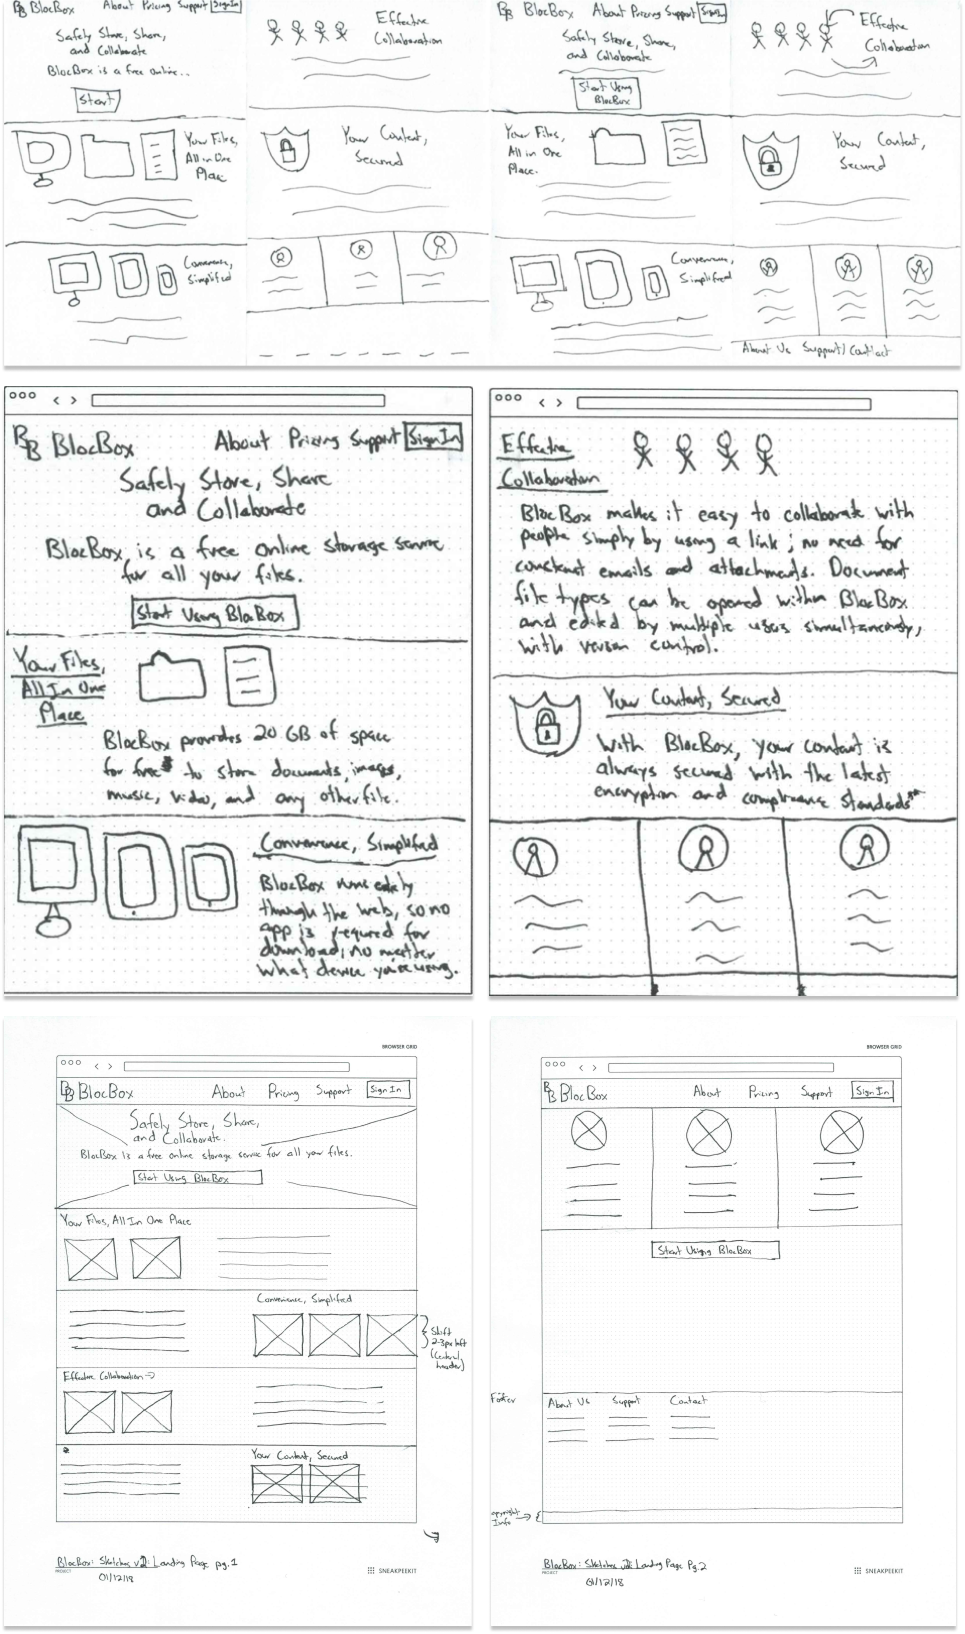 BB BlocBox About Pricing Support Sign In
Safely Store, Share,
and Collaborate
BlocBox is a free online...
Start
Your Files,
All in One
Place
Convenience,
Simplified
Effective
Collaboration
Your Content,
Secured
BB BlocBox About Pricing Support Sign In
Safely Store, Share,
and Collaborate
Start Using
BlocBox
Your Files,
All in One
Place.
Convenience,
Simplified
Effective
Collaboration
Your Content,
Secured
About Us Support/Contact
BB BlocBox About Pricing Support Sign In
Safely Store, Share
and Collaborate
BlocBox is a free online storage service
for all your files.
Start Using BlocBox
Your Files,
All In One
Place
BlocBox provides 20 GB of space
for free* to store documents, images,
music, video, and any other file.
Convenience, Simplified
BlocBox runs entirely
through the web, so no
app is required for
download, no matter
what device you're using.
Effective
Collaboration
BlocBox makes it easy to collaborate with
people simply by using a link; no need for
constant emails and attachments. Document
file types can be opened within BlocBox
and edited by multiple users simultaneously,
with version control.
Your Content, Secured
With BlocBox, your content is
always secured with the latest
encryption and compliance standards**
BROWSER GRID
BB BlocBox About Pricing Support Sign In
Safely Store, Share,
and Collaborate.
BlocBox is a free online storage service for all your files.
Start Using BlocBox
Your Files, All In One Place
Convenience, Simplified
Shift
2-3px left
(Central
header)
Effective Collaboration →
Your Content, Secured
BlocBox: Sketches v2: Landing Page pg.1
PROJECT
01/12/18
SNEAKPEEKIT
BROWSER GRID
BB BlocBox About Pricing Support Sign In
Start Using BlocBox
Footer
About Us Support Contact
opyright
Info →
BlocBox: Sketches v2: Landing Page Pg.2
PROJECT
01/12/18
SNEAKPEEKIT